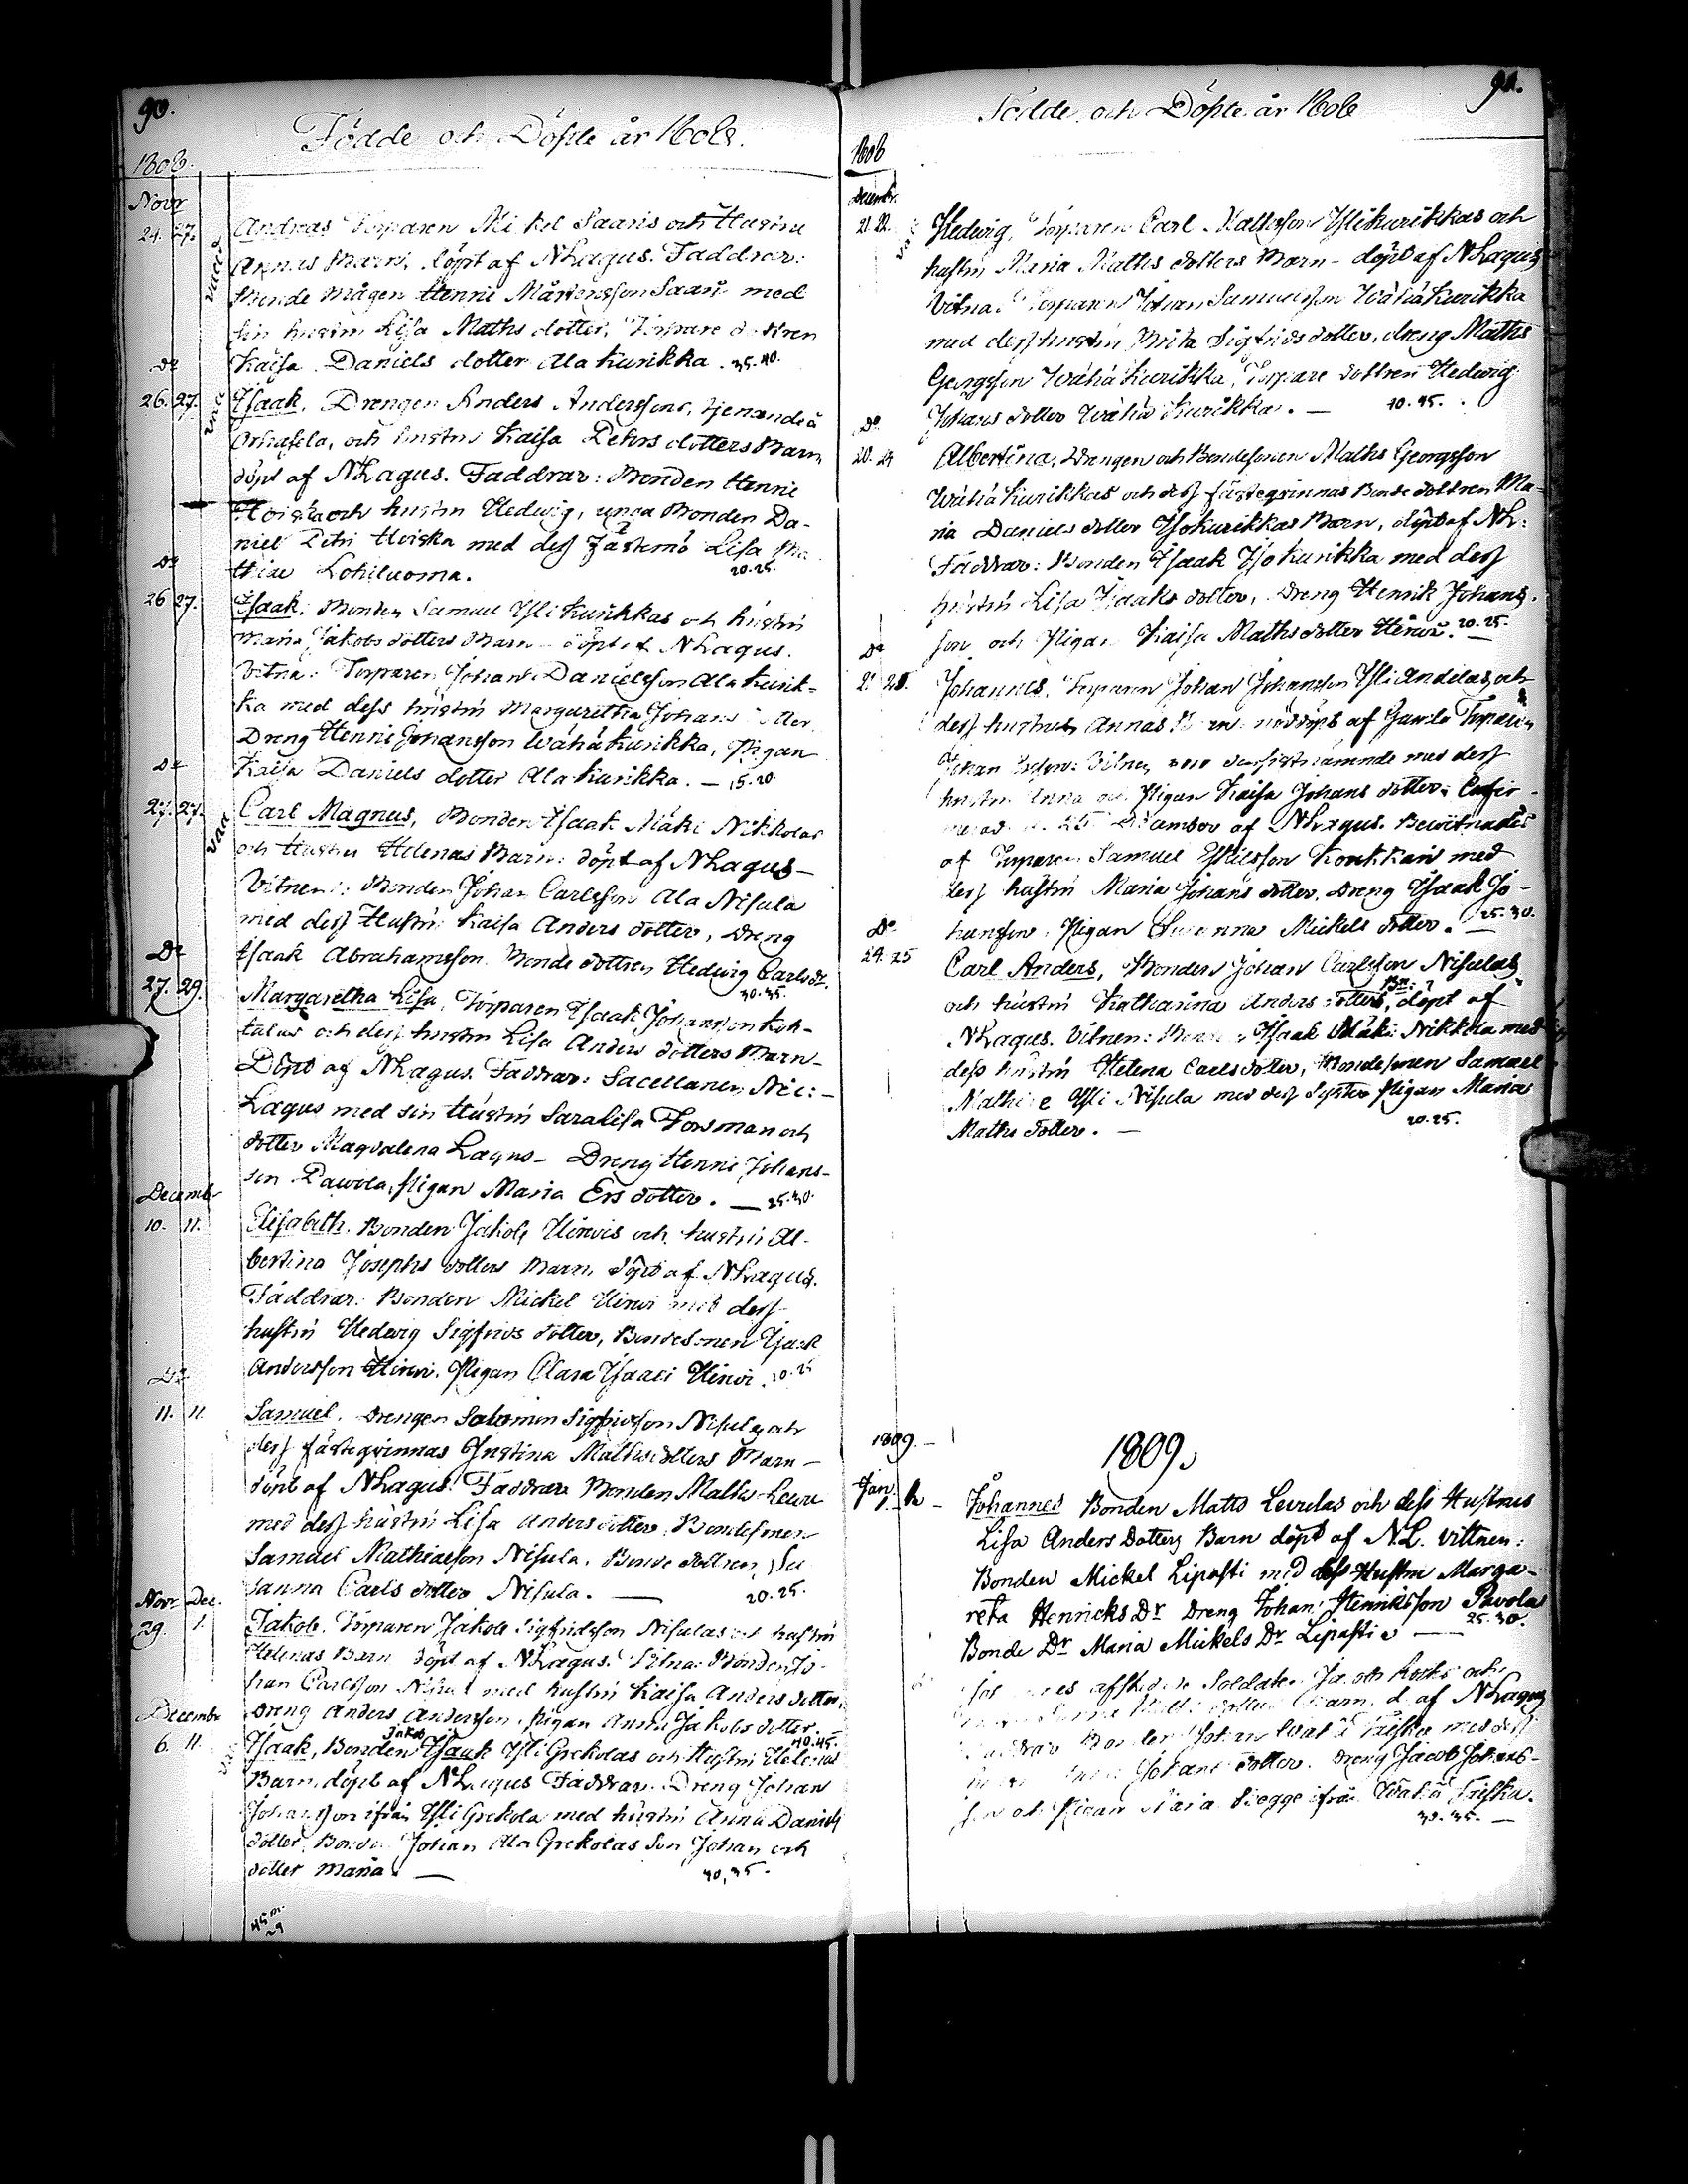 90.
Födde och Döpte år 1808.
1808.
Novr
24. 27. Andreas Torparen Mickel Saaris och Hustru
Annas Barn, döpt af NLagus. Faddrar:
Bonde mågen Henric Mårtensson Saari med
sin hustru Lisa Maths dotter, Torpare dottren
Do Kaisa Daniels dotter Ala Kurikka. 35.40.
26. 27. Isaak, Drengen Anders Anderssons, tjenande å
och hustru Kaisa Pehrs dotters Barn
döpt af NLagus. Faddrar: Bonden Henric
Hoiska och hustru Hedwig, unga Bonden Da-
niel Petri Hoiska med dess Fästemö Lisa Ma
Do thiae Lohiluoma. 20.25.
26 27. Isaak, Bonden Samuel Ylikurikkas och hustru
Maria Jakobs dotters Barn döpt af NLagus.
Vitna: Torparen Johan Danielsson Ala Kurik-
ka med dess hustru Margaretha Johans dotter
Dreng Henric Johansson Wähäkurikka, Pigan
Do Kaisa Daniels dotter Ala Kurikka. — 15.20
27. 27. Carl Magnus, Bonden Isaak Mäki Nikkolas
och Hustru Helenas Barn: döpt af NLagus —
Vitnen: Bonden Johan Carlsson Ala Nisula
med dess Hustru Kaisa Anders dotter, Dreng
Do Isaak Abrahamsson Bonde dottren Hedwig Carls dr.
30.35.
27. 29. Margaretha Lisa, Torparen Isaak Johansson Koh-
talas och dess hustru Lisa Anders dotters Barn —
Döpt af NLagus. Faddrar: Sacellanen Nic: —
Lagus med sin Hustru Saralisa Forsman och
dotter Magdalena Lagus — Dreng Henric Johans-
son Pawola, Pigan Maria Ers dotter. — 25.30.
Decembr
10. 11. Elisabeth. Bonden Jakob Hirvis och hustru Al-
bertina Josephs dotters Barn, döpt af NLagus.
Faddrar: Bonden Mickel Hirvi med dess
hustru Hedwig Sigfrids dotter, Bondesonen Isaak
Do Andersson Hirvi, Pigan Clara Isaaci Hirvi. 20.25
11. 11. Samuel. Drengen Salomon Sigfridsson Nisulas och
dess fästeqvinnas Justina Mathsdotters Barn —
döpt af NLagus. Faddrar Bonden Maths Leuru
med dess hustru Lisa Anders dotter, Bondesonen
Samuel Mathiasson Nisula, Bonde dottren Su
sanna Carls dotter Nisula. — 20.25.
Novr Dec.
29. 1. Jakob, Torparen Jakob Sigfridsson Nisulas och hustru
Helenas Barn döpt af NLagus. Vitna: Bonden Jo-
han Carlsson Nisula med hustru Kaisa Anders dotter,
Decembr Dreng Anders Andersson, pigan Anna Jakobs dotter. —
40.45.
6. 11. Isaak, Bonden Jakob Isaak Yli Grekolas och Hustru Helenas
Barn, döpt af NLagus Faddrar. Dreng Johan
Johansson ifrån Yli Grekola med hustru Anna Daniels
dotter, Bonden Johan Ala Grekolas son Johan och
dotter Maria. — 30,35.
91.
Födde och Döpte år 1808
1808
Decembr.
21. 22. Hedwig, Torparen Carl Mathsson Ylikurikkas och
hustru Maria Maths dotters Barn — döpt af NLagus
Vitna: Torparen Johan Samuelsson Wähäkurikka
med dess hustru Brita Sigfrids dotter, dreng Maths
Georgsson Wähäkurikka, Torpare dottren Hedwig
Do Johans dotter Wähä Kurikka. — 40.45.
20. 24 Albertina, Drengen och Bondesonen Maths Georgsson
Wähäkurikkas och dess fästeqvinnas Bonde dottren Ma-
ria Daniels dotter Isokurikkas Barn, döpt af NL:
Faddrar: Bonden Isaak Isokurikka med dess
hustru Lisa Isaaks dotter, Dreng Henrik Johans-
Do son och Pigan Kaisa Maths dotter Hirvi. 20.25.
25. Johannes, Torparen Johan Johansson Yli Andelas och
dess hustrus Annas Barn, nöddöpt af Gamla Torparen
Johan Vitnen woro med dess
hustru Anna och Pigan Kaisa Johans dotter. Confir-
merad d. 25 December af NLagus. Bewitnades
af Torparen Samuel Eskilsson Koukkari med
dess hustru Maria Johans dotter, Dreng Isaak Jo-
Do hansson, Pigan Susanna Mickels dotter. 25.30.
24. 25 Carl Anders, Bonden Johan Carlsson Nisulas
och hustru Katharina Anders dotters, Bn: döpt af
NLagus. Vitnen: Bonden Isaak Mäki Nikkola med
dess hustru Helena Carlsdotter, Bondesonen Samuel
Mathiae Yli Nisula med dess syster Pigan Maria
Maths dotter. — 20.25.
1809. —
1809.
Jan. Johannes Bonden Matts Leurulas och dess Hustrus
Lisa Anders Dotters Barn döpt af N.L. Vittnen:
Bonden Mickel Lipasti med dess Hustru Marga-
reta Henricks Dr Dreng Johan Henriksson Pavola
Bonde Dr Maria Mickels Dr Lipasti — 25.30.
afskedade Soldaten Jacob och
Barn, d. af NLagus
Faddrar Bonden Johan med dess
Johans dotter. Dreng Jacob Johans-
son och Pigan Maria ifrån
30.35. —